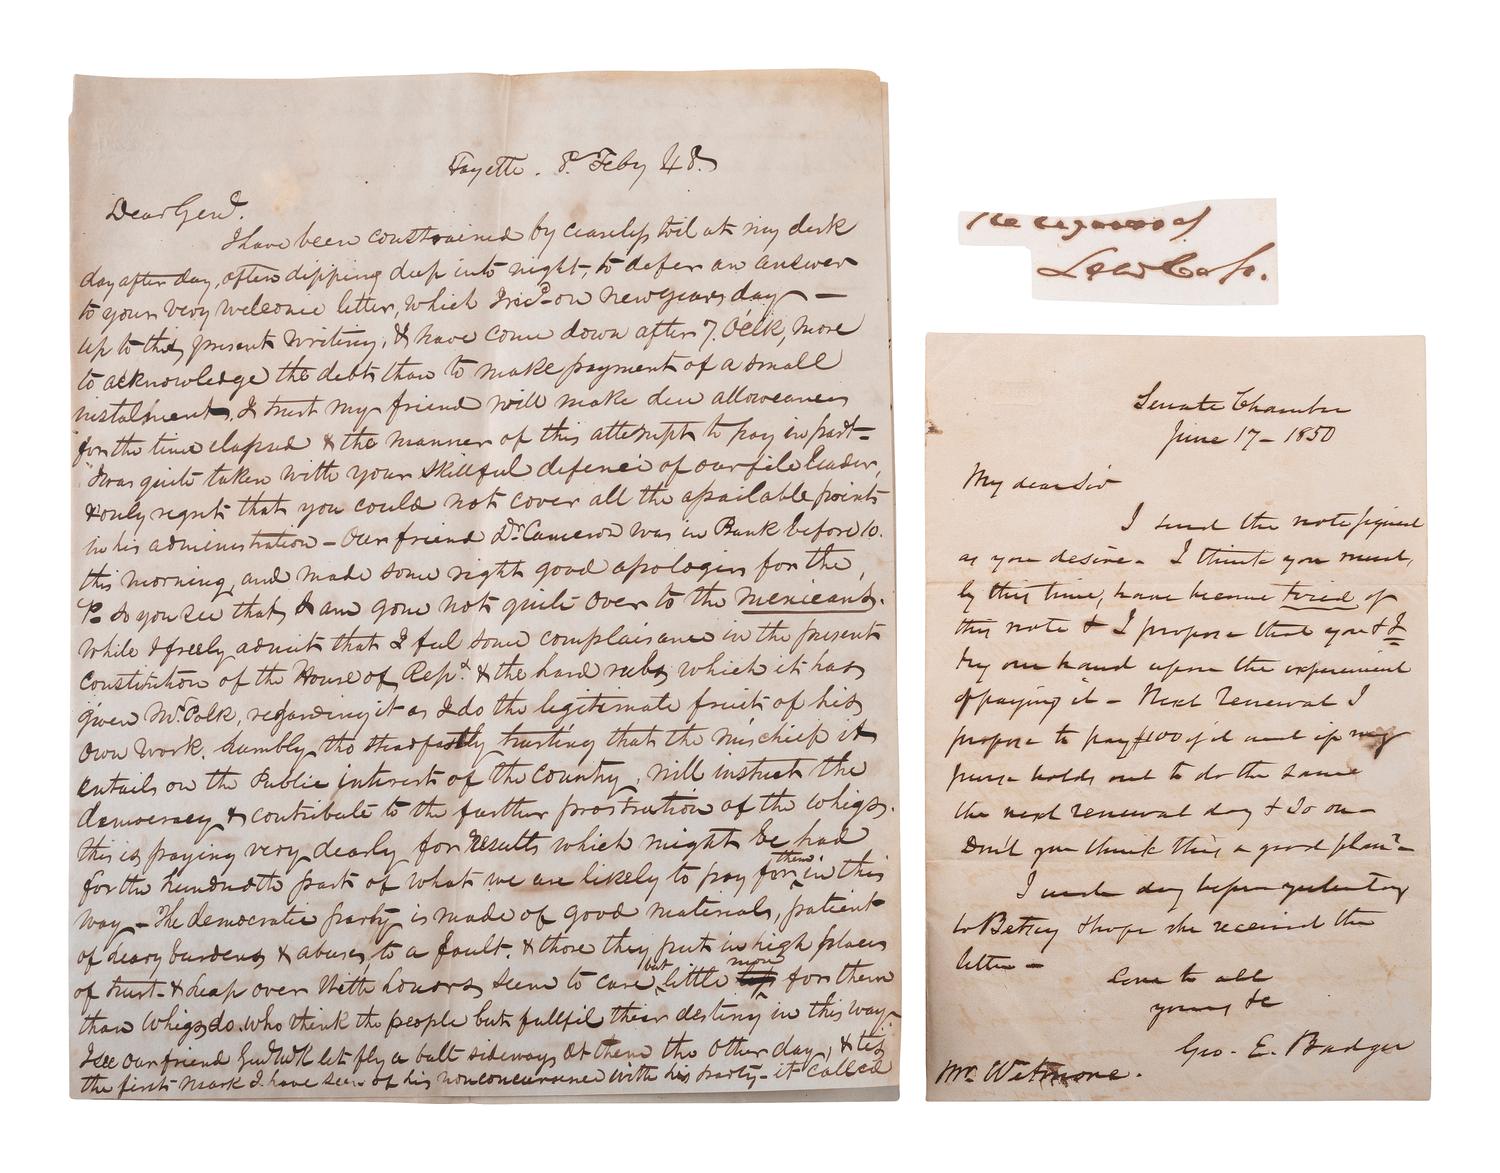 Fayette. 8. Feby 48.
Dear Genl.
I have been constrained by ceaseless toil at my desk
day after day, often dipping deep into night, to defer an answer
to your very welcome letter, which I recd. on new years day —
up to this present writing, & have come down after 7. Oclk, more
to acknowledge the debt than to make payment of a small
instalment. I trust my friend will make due allowances
for the time elapsed & the manner of this attempt to pay in part —
I was quite taken with your skillful defence of our file leader,
& only regret that you could not cover all the assailable points
in his administration — Our friend Dr. Cameron was in Bank before 10.
this morning, and made some right good apologies for the
P. So you see that I am gone not quite over to the mexicans.
While I freely admit that I feel some complaisance in the present
Constitution of the House of Reps. & the hard rubs which it has
given Mr. Polk, regarding it as I do the legitimate fruit of his
own work. humbly, tho steadfastly trusting that the mischief it
entails on the Public interest of the Country, will instruct the
democracy, & contribute to the further prostration of the whigs.
this is paying very dearly for results which might be had
for the hundredth part of what we are likely to pay for them in this
way — The democratic party is made of good materials, patient
of heavy burdens & abuses, to a fault. & those they put in high places
of trust — & heap over with honors seem to care but little more for them
than Whigs do. who think the people but fullfil their destiny in this way —
I see our friend let fly a bolt sideways at them the other day, & tis
the first mark I have seen of his nonconcurrence with his party — it called
Lew Cass.
Senate Chamber
June 17 — 1850
My dear Sir
I send the note signed
as you desire — I think you must,
by this time, have become tired of
this note & I propose that you & I
try our hand upon the experiment
of paying it — Next renewal I
propose to pay $100 of it and if my
purse holds out to do the same
the next renewal day & so on —
Don't you think this a good plan? —
I wrote day before yesterday
to Betsey & hope she received the
letter —
Love to all
yours &c
Geo. E. Badger
Mr. Wetmore.